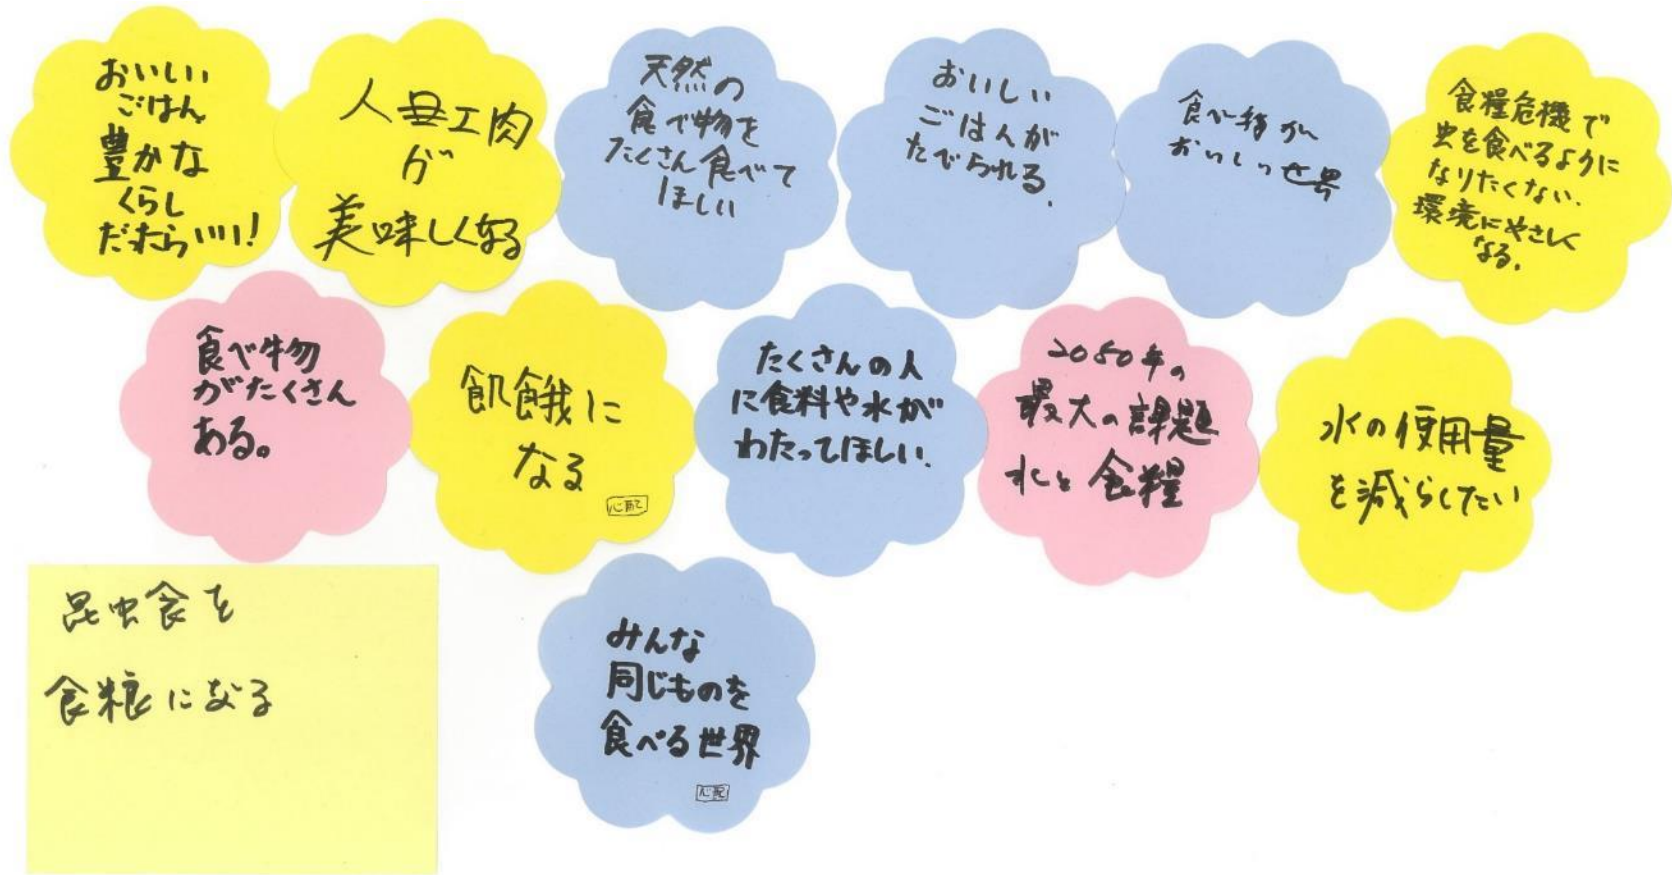 おいしい
ごはん
豊かな
くらし
だったらいい!
人工肉
が
美味しくなる
天然の
食べ物を
たくさん食べて
ほしい
おいしい
ごはんが
たべられる.
食べ物が
おいしい世界
食糧危機で
虫を食べるように
なりたくない.
環境にやさしく
なる.
食べ物
がたくさん
ある。
飢餓に
なる
心配
たくさんの人
に食料や水が
わたってほしい.
2050年の
最大の課題
水と食糧
水の使用量
を減らしたい
昆虫食を
食糧になる
みんな
同じものを
食べる世界
心配